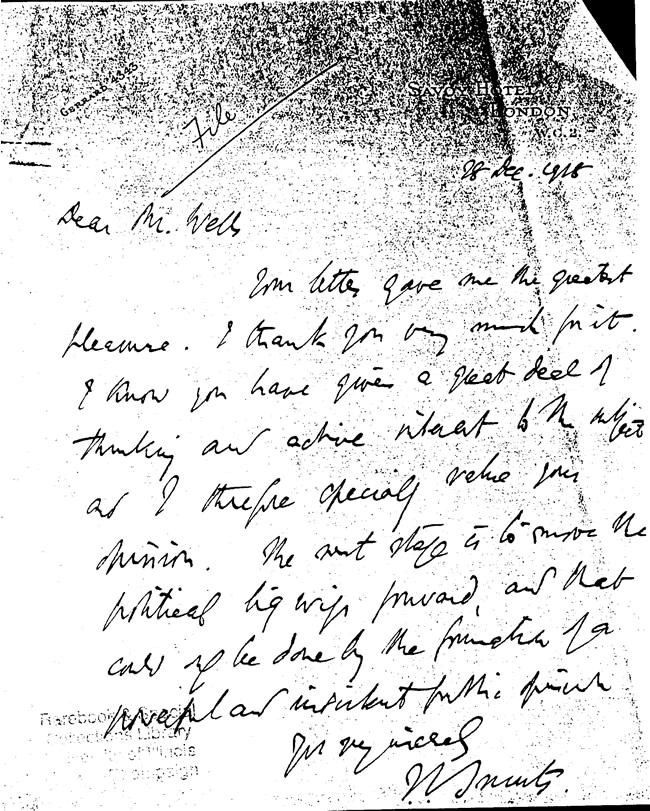 Gerrard 4343
SAVOY HOTEL,
LONDON.
W.C.2.
File
28 Dec. 1918
Dear Mr. Wells
Your letter gave me the greatest
pleasure. I thank you very much for it.
I know you have given a great deal of
thinking and active interest to the subject
and I therefore specially value your
opinion. The next stage is to move the
political big wigs forward, and that
could only be done by the formation of a
powerful and insistent public opinion
Yrs very sincerely
J C Smuts.
Rarebook & Special
Collections Library
University of Illinois
Champaign